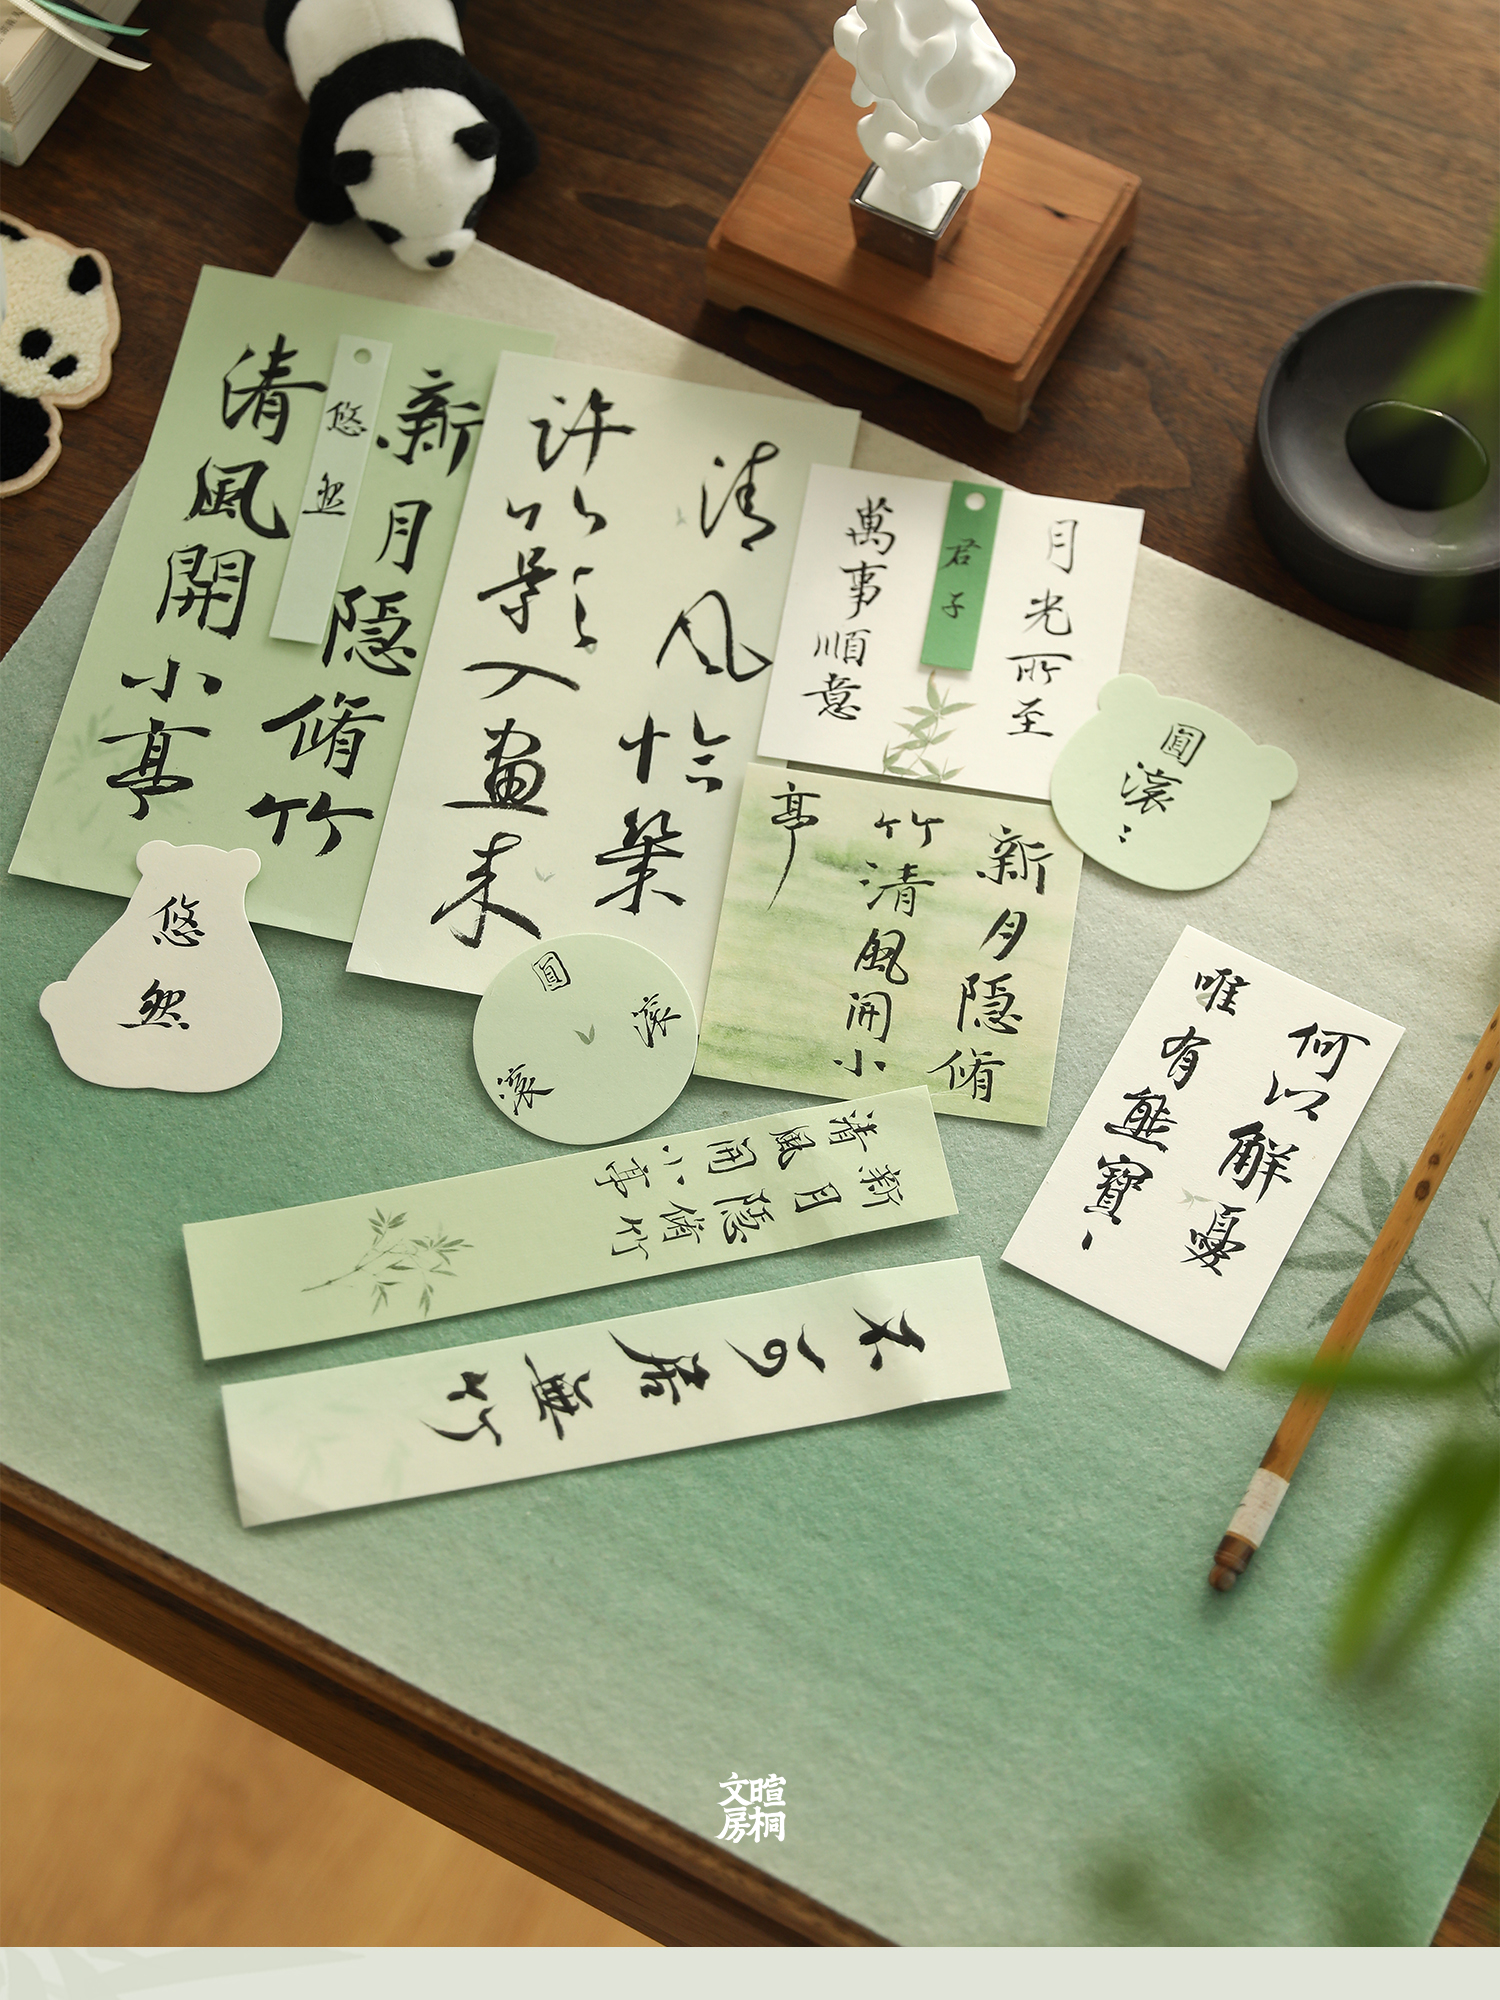 新月隐脩竹
清風開小亭
悠然
清风恰築
許竹影入畫来
月光所至
萬事順意
君子
圓滚:
新月隐脩
竹清風開小
亭
悠然
圓滚滚
何以解憂
唯有熊寶、
新月隐脩竹
清風開小亭
不可居無竹
暄桐
文房